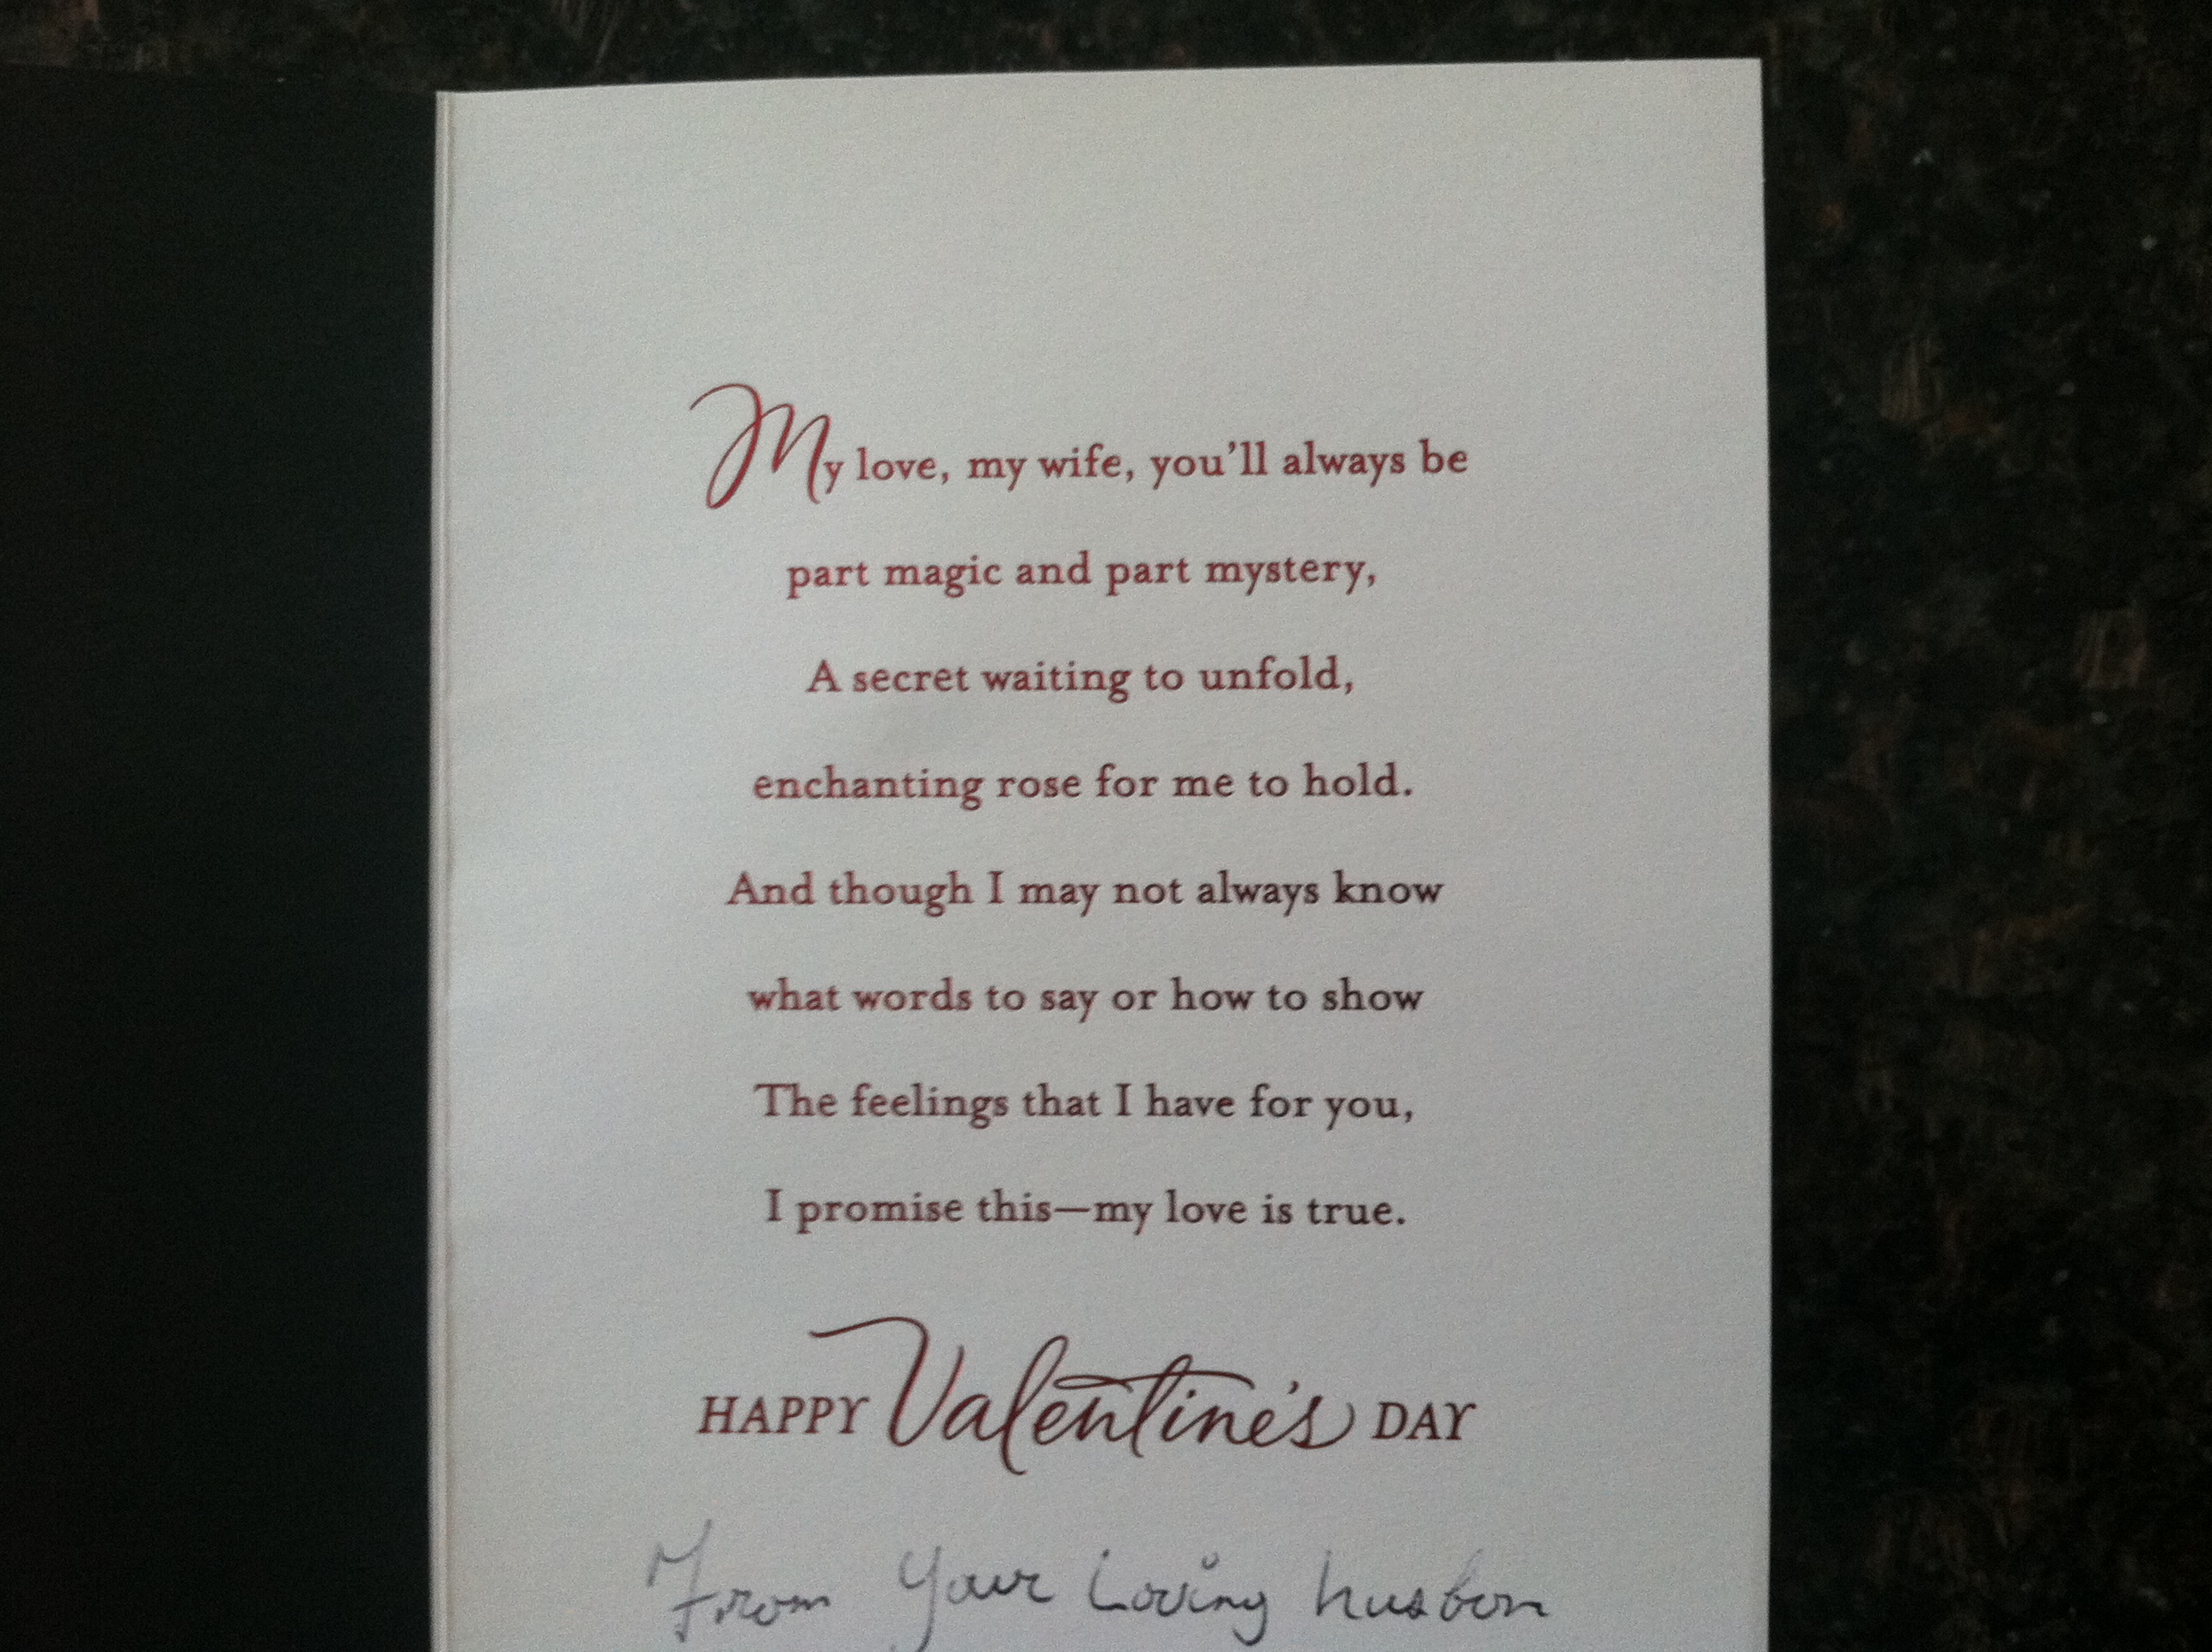 My love, my wife, you'll always be
part magic and part mystery,
A secret waiting to unfold,
enchanting rose for me to hold.
And though I may not always know
what words to say or how to show
The feelings that I have for you,
I promise this—my love is true.
HAPPY Valentine's DAY
From Your Loving husbon